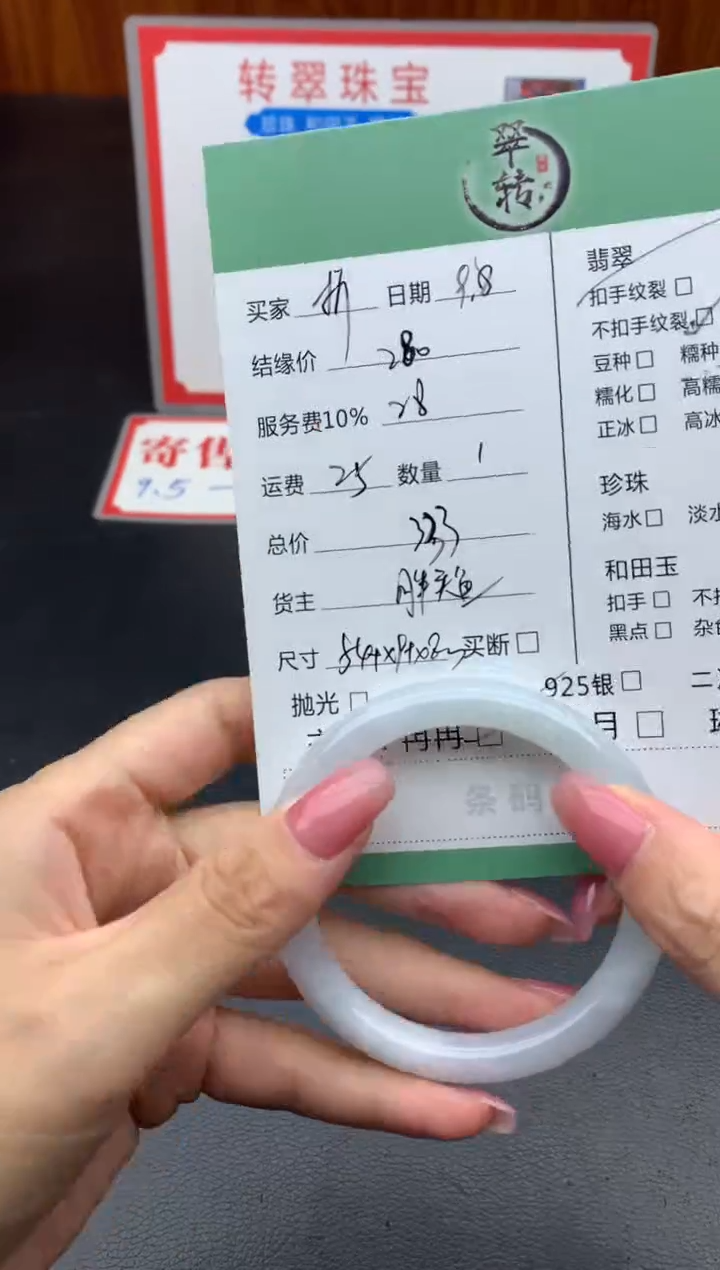 转翠珠宝
翠转
买家 日期 9.8
结缘价 280
服务费10% 28
运费 25 数量 1
总价 333
货主 胖头鱼
尺寸 买断□
抛光□
925银□
月□
条码
翡翠
扣手纹裂□
不扣手纹裂□
豆种□ 糯种
糯化□ 高糯
正冰□ 高冰
珍珠
海水□ 淡水
和田玉
扣手□ 不扣
黑点□ 杂色
二
寄售
9.5 一